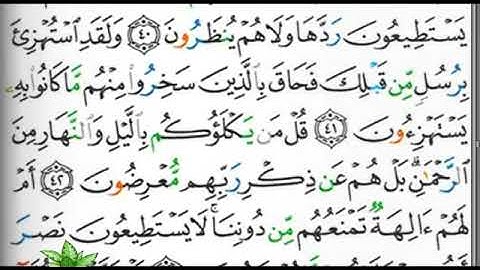 يَسْتَطِيعُونَ رَدَّهَا وَلَا هُمْ يُنظَرُونَ ٤٠ وَلَقَدِ ٱسْتُهْزِئَ
بِرُسُلٍ مِّن قَبْلِكَ فَحَاقَ بِٱلَّذِينَ سَخِرُوا۟ مِنْهُم مَّا كَانُوا۟ بِهِۦ
يَسْتَهْزِءُونَ ٤١ قُلْ مَن يَكْلَؤُكُم بِٱلَّيْلِ وَٱلنَّهَارِ مِنَ
ٱلرَّحْمَٰنِ ۗ بَلْ هُمْ عَن ذِكْرِ رَبِّهِم مُّعْرِضُونَ ٤٢ أَمْ
لَهُمْ ءَالِهَةٌ تَمْنَعُهُم مِّن دُونِنَا ۚ لَا يَسْتَطِيعُونَ نَصْرَ